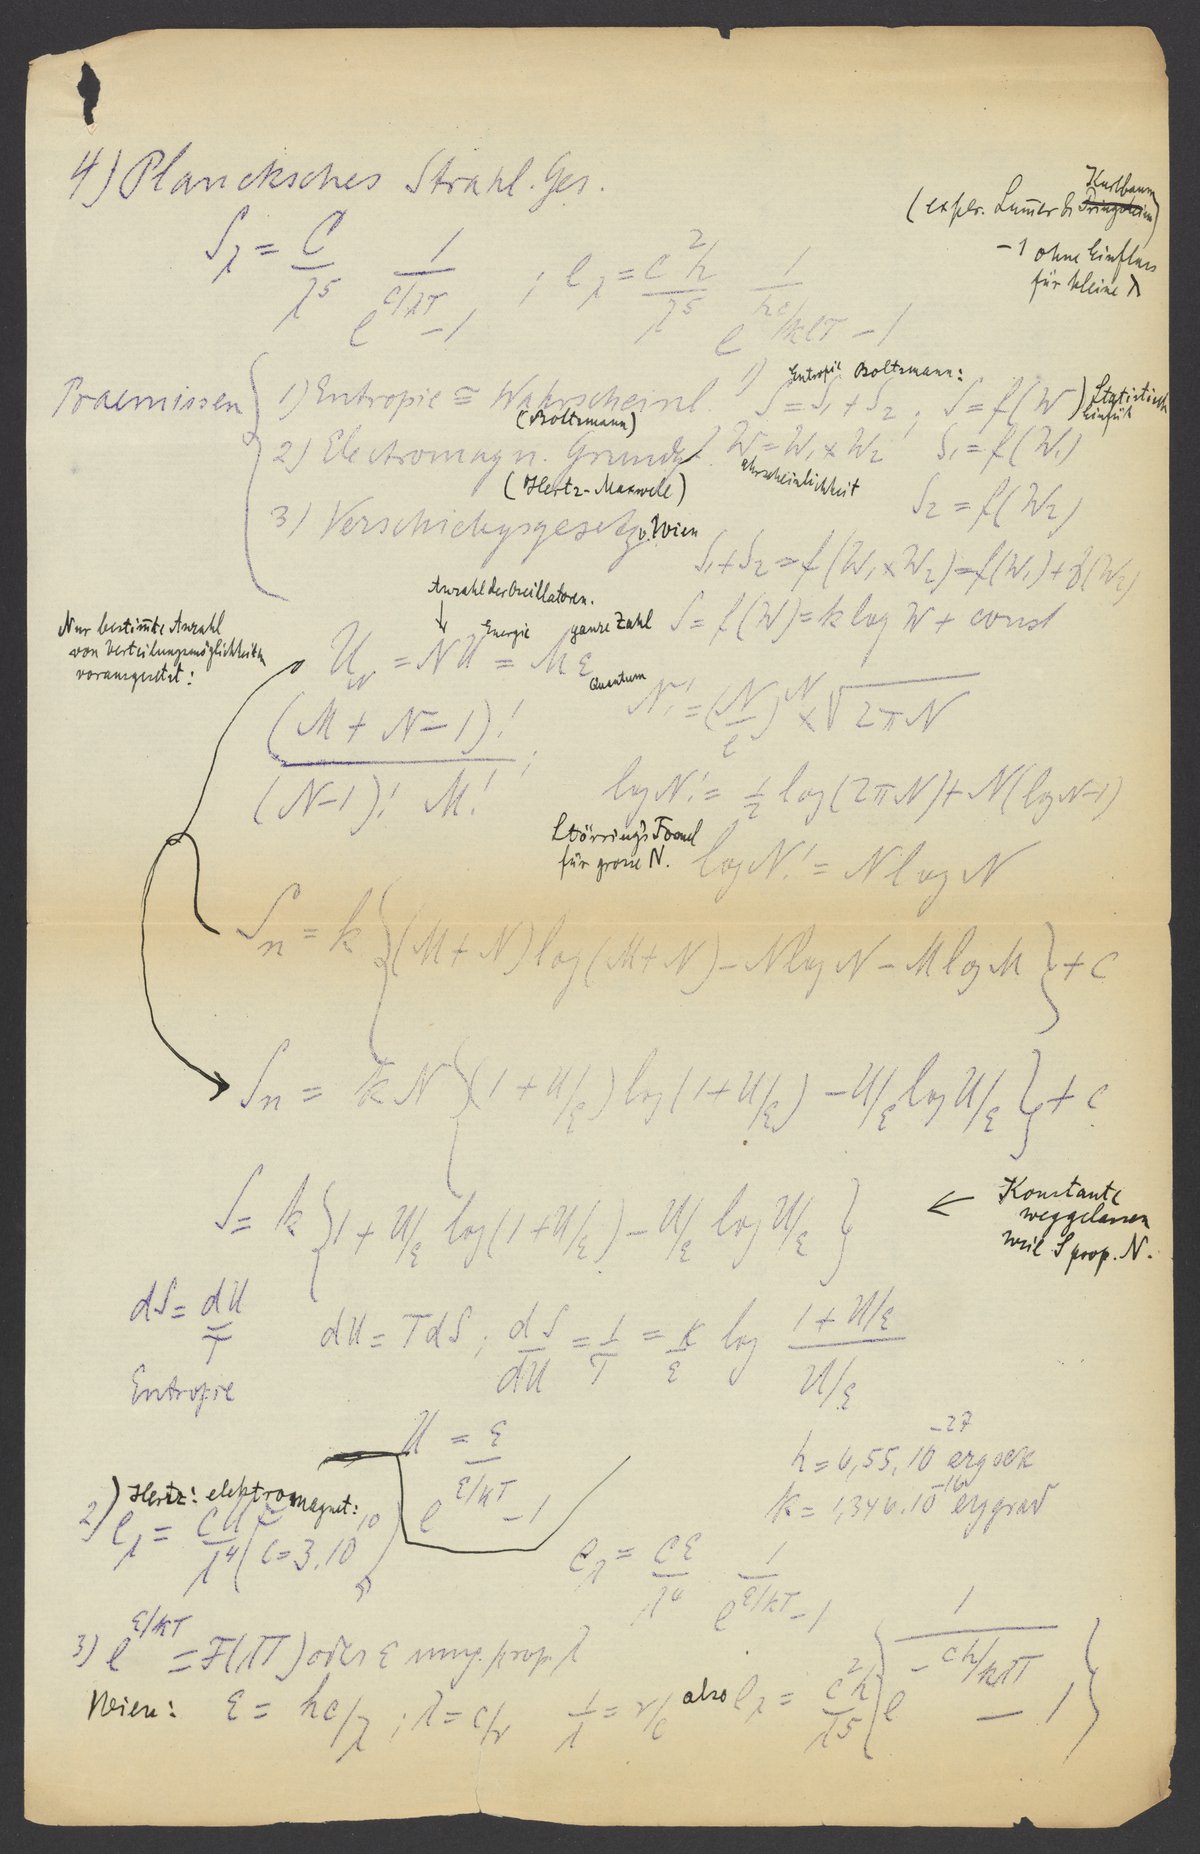 4) Plancksches Strahl. Ges.
(exper. Lum̄er & Kurlbaum)
Pringsheim
-1 ohne Einfluss
für kleine λ
S_λ = C/λ^5 1/(e^{c/λT} -1) ; e_λ = c^2h/λ^5 1/(e^{hc/kλT} -1)
Praemissen
1) Entropie ≅ Wahrscheinl.
(Boltzmann)
2) Electromagn. Grundgl.
(Hertz-Maxwell)
3) Verschiebgsgesetz v. Wien
1) Entropie Boltzmann:
S = S_1 + S_2 ; S = f(W)
Statistisch
W = W_1 x W_2 S_1 = f(W_1)
ahrscheinlichkeit
S_2 = f(W_2)
S_1 + S_2 = f(W_1 x W_2) = f(W_1) + f(W_2)
S = f(W) = k log W + const
Nur bestim̄te Anzahl
von Verteilungsmöglichkeiten
vorausgesetzt:
Anzahl der Oscillatoren.
↓ Energie ganze Zahl
U_N = NU = Mε
Quantum
N! = (N/e)^N x √2πN
(M + N - 1)! / (N-1)! M! ;
log N! = 1/2 log(2πN) + N(log N-1)
für grosse N.
log N! = N log N
S_n = k {(M + N) log (M + N) - N log N - M log M} + c
S_n = k N {(1 + U/ε) log (1 + U/ε) - U/ε log U/ε} + c
S = k {1 + U/ε log (1 + U/ε) - U/ε log U/ε}
← Konstante
weggelassen
weil S prop. N.
dS = dU/T
Entropie
dU = TdS ; dS/dU = 1/T = k/ε log (1 + U/ε)/(U/ε)
U = ε/(e^{ε/kT} -1)
h = 6,55.10^{-27} erg sek
k = 1,346.10^{-16} erg grad
2) Hertz: elektromagnet:
e_λ = cU/λ^4 (c = 3.10^{10})
e_λ = cε/λ^4 1/(e^{ε/kT} -1)
3) e^{ε/kT} = F(λT) oder ε umg. prop. λ
Wien: ε = hc/λ ; λ = c/ν 1/λ = ν/c also e_λ = c^2h/λ^5 {1/(e^{ch/kλT} - 1)}